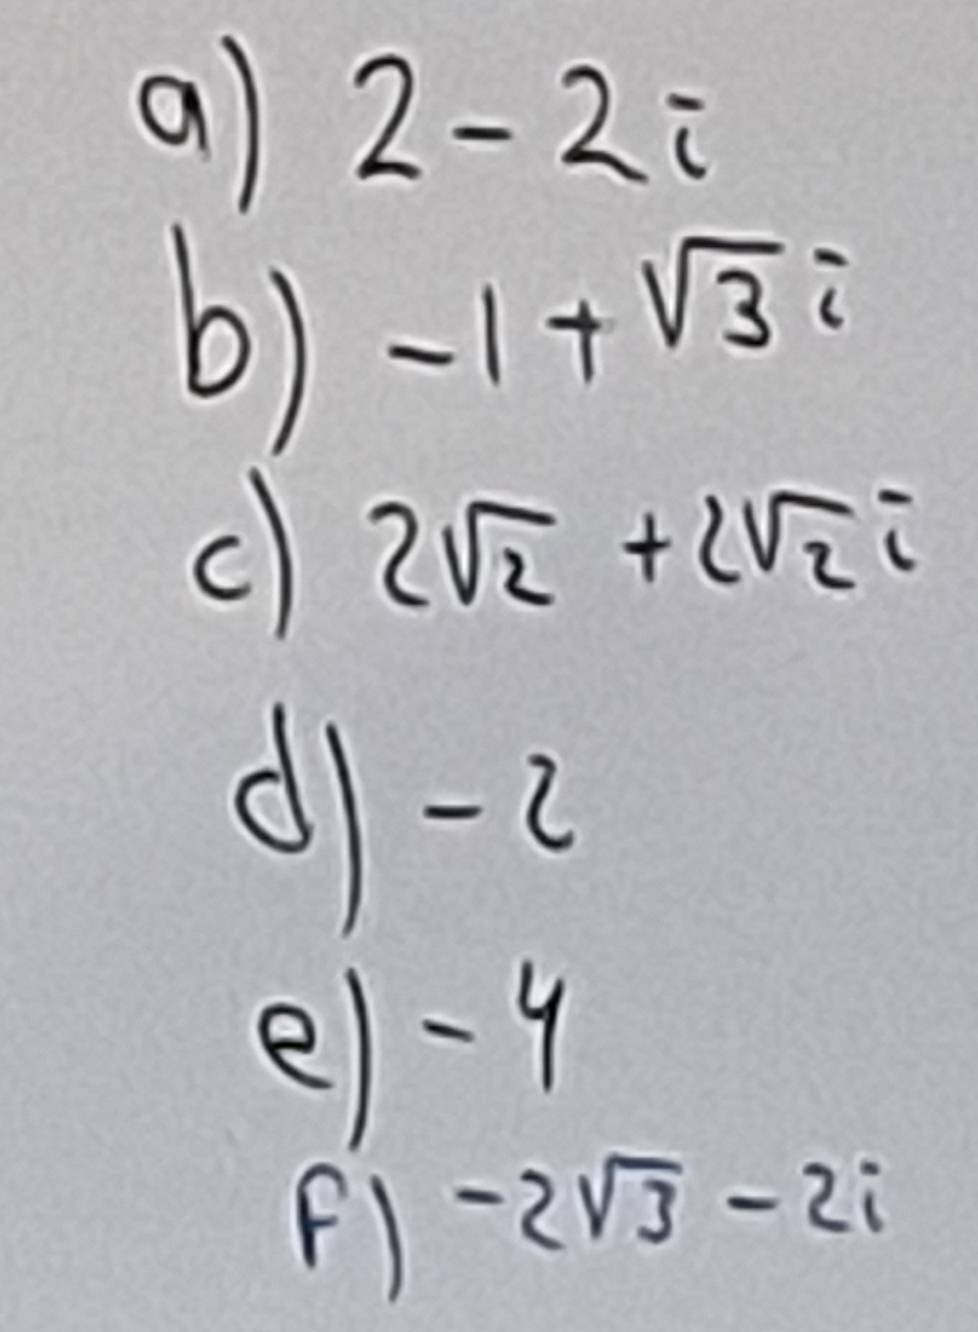 a) 2 - 2i
b) -1 + √3 i
c) 2√2 + 2√2 i
d) - 2
e) - 4
f) -2√3 - 2i